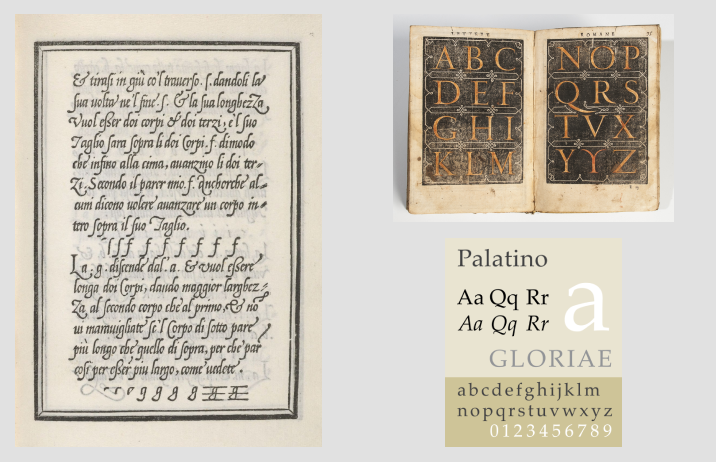 & tirasi in giù co'l trauerso. ſ. dandoli la
sua uolta ne'l fine. ſ. & la sua longhezza
Vuol eſser doi corpi & doi terzi, è'l suo
Taglio sara ſopra li doi Corpi. f. dimodo
che infino alla cima, auanzino li doi ter-
Zi. Secondo il parer mio. f. anchorche al-
cuni dicono uolere auanzare un corpo in-
tero ſopra il ſuo Taglio.
ſ ſ f f f f f f f
La. g. diſcende dal. a. & uuol eſsere
longa doi Corpi, dando maggior larghez-
Za, al ſecondo corpo che al primo, & nō
ui marauigliate ſe'l Corpo di ſotto pare
più longo che quello di ſopra, per che par
coſi per eſser più largo, come uedete.
g g g g
LETTERE
A B C
D E F
G H I
K L M
ROMANE
N O P
Q R S
T V X
Y Y Z
Palatino
Aa Qq Rr
Aa Qq Rr
a
GLORIAE
abcdefghijklm
nopqrstuvwxyz
0123456789